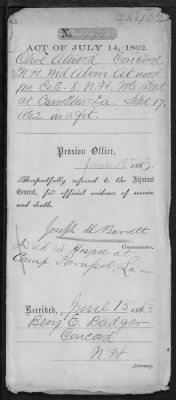 ACT OF JULY 14, 1862.
Olive Atwood Concord
N.H. Wid Atwood
Co E. 8. N.H.
at Carrollton La. Sept 17,
1862 in a fit.
Pension Office,
June 1863.
Respectfully referred to the Adjutant
General, for official evidence of service
and death.
Joseph H Barrett
Commissioner.
Died in Hospl at
Camp Parapet, La
Received, June 15 1863
Benj E. Badger
Concord
N.H.
Attorney.